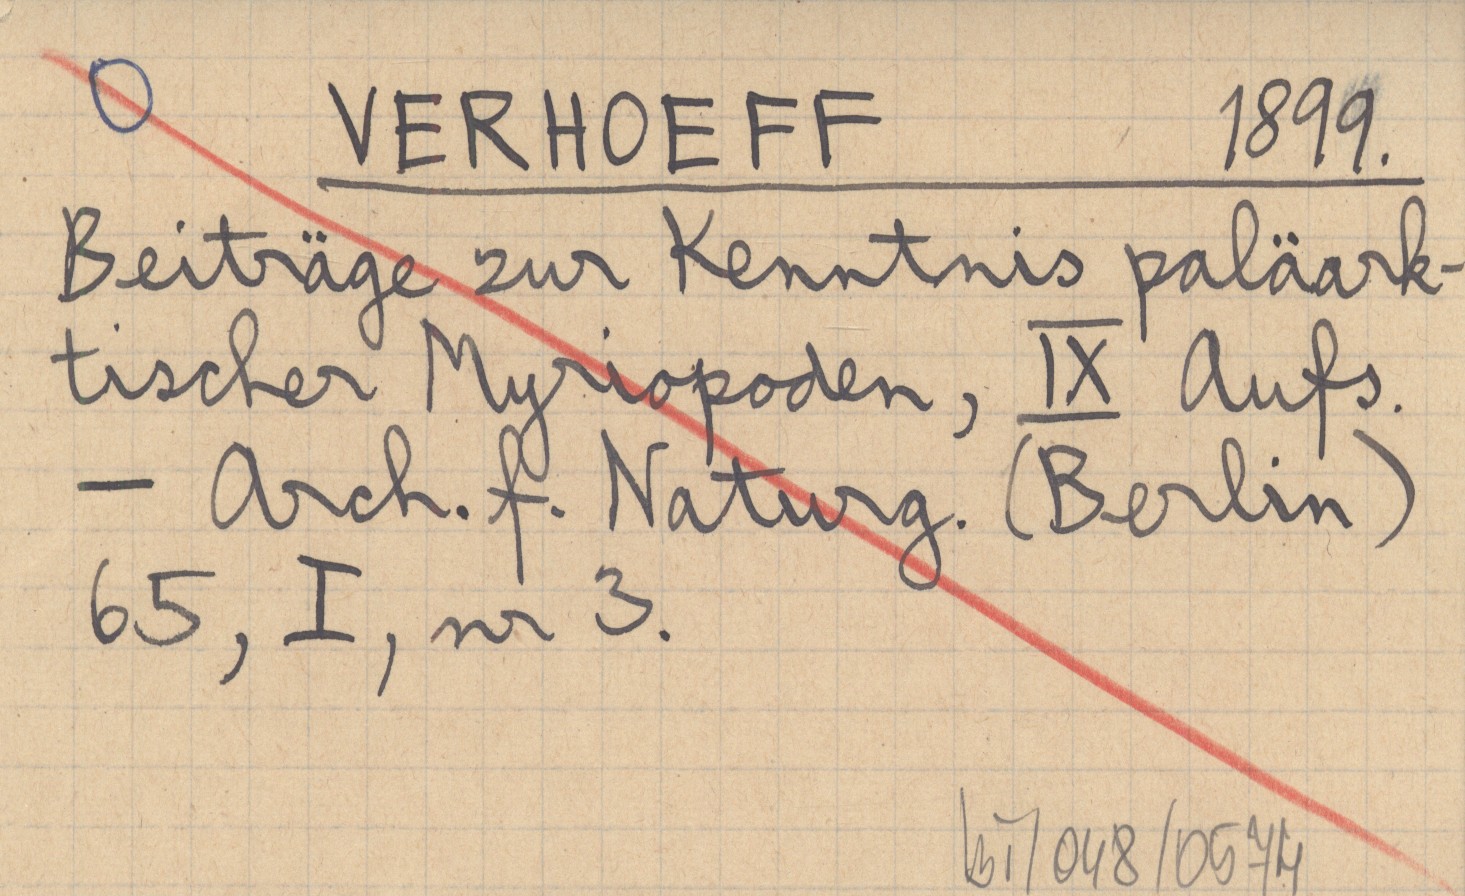 VERHOEFF 1899.
Beiträge zur Kenntnis paläark-
tischer Myriopoden, IX Aufs.
— Arch. f. Naturg. (Berlin)
65, I, nr 3.
/048/0574